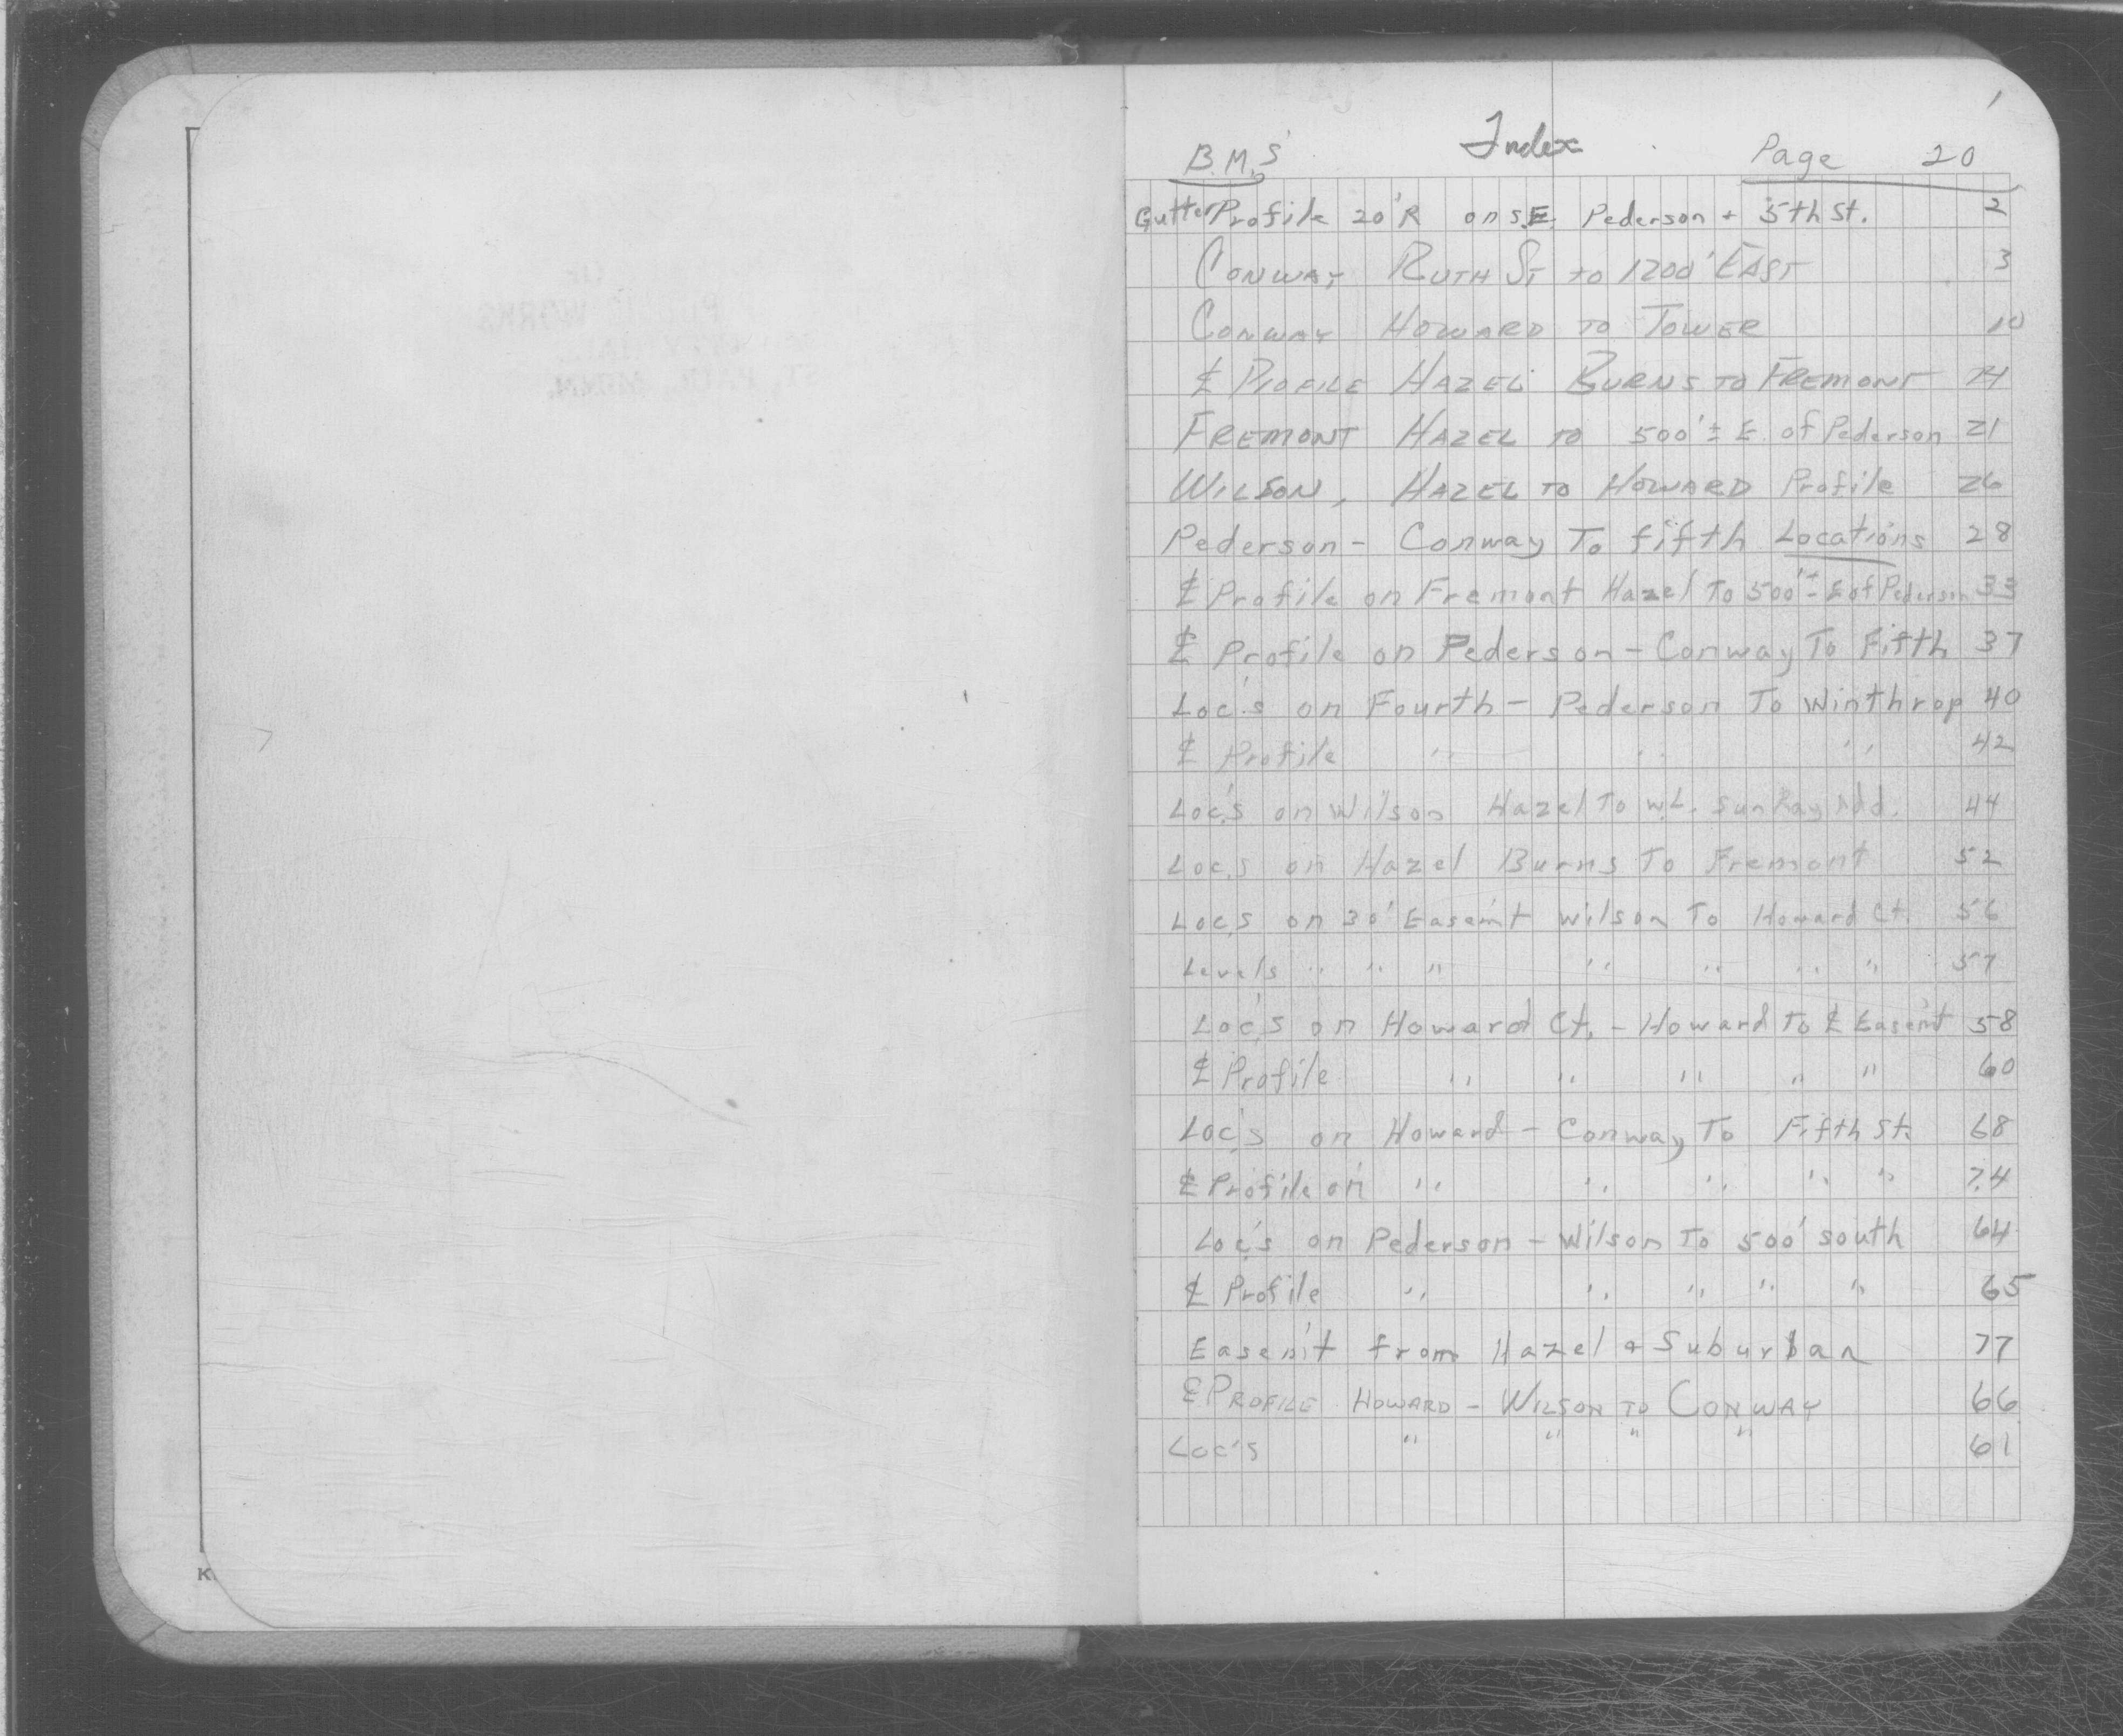 1
Index
B.M.'s Page 20
Gutter Profile 20'R on S.E. Pederson + 5th St. 2
CONWAY RUTH ST TO 1200' EAST 3
CONWAY HOWARD TO TOWER 10
℄ PROFILE HAZEL BURNS TO FREMONT 14
FREMONT HAZEL TO 500'± E. of Pederson 21
WILSON, HAZEL TO HOWARD Profile 26
Pederson - Conway To fifth Locations 28
℄ Profile on Fremont Hazel To 500'± E of Pederson 33
℄ Profile on Pederson - Conway To Fifth 37
Loc's on Fourth - Pederson To Winthrop 40
℄ Profile " " " 42
Loc's on Wilson Hazel To W.L. Sun Ray Add. 44
Loc.s on Hazel Burns To Fremont 52
Loc.s on 30' Easem't Wilson To Howard Ct. 56
Levels " " " " " " " 57
Loc's on Howard Ct. - Howard To ℄ Easem't 58
℄ Profile " " " " " 60
Loc's on Howard - Conway To Fifth St. 68
℄ Profile on " " " " " 74
Loc's on Pederson - Wilson To 500' south 64
℄ Profile " " " " " 65
Easem't from Hazel & Suburban 77
℄ PROFILE HOWARD - WILSON TO CONWAY 66
Loc's " " " " 61
K